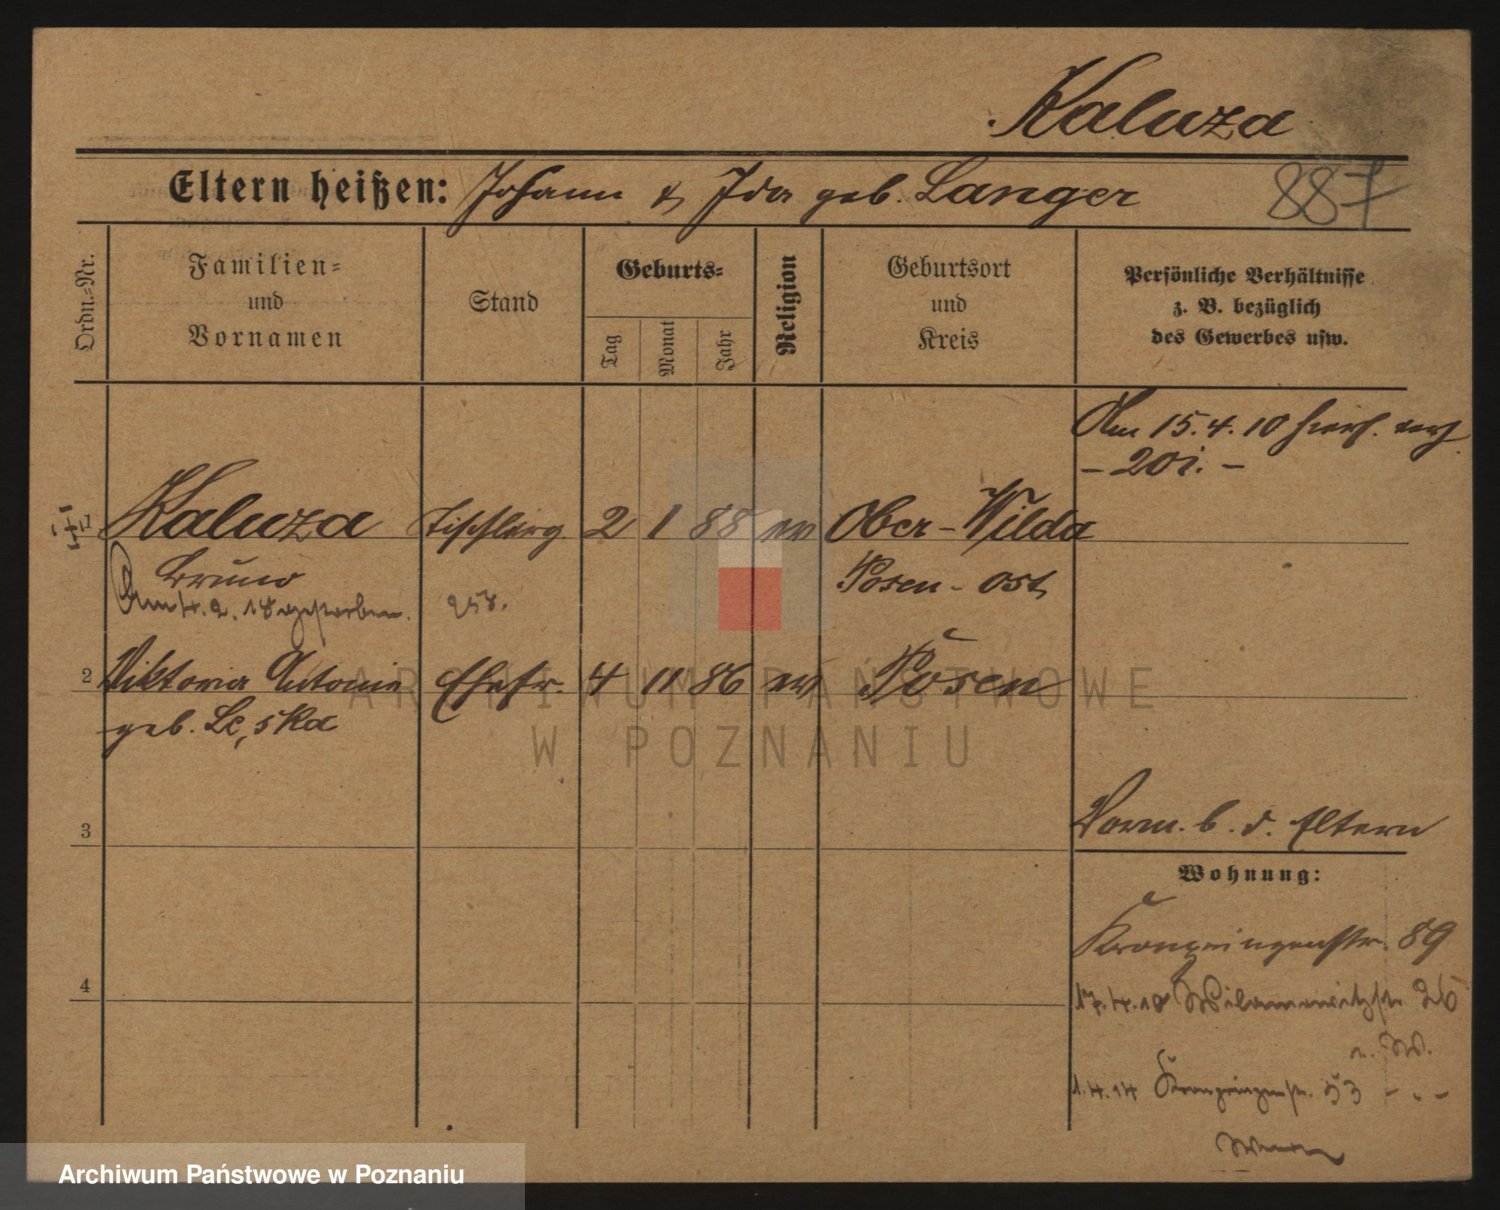 Kaluza
Eltern heißen: Johann & Ida geb. Langer
887
Ordn.=Nr.
Familien=
und
Vornamen
Stand
Geburts=
Tag
Monat
Jahr
Religion
Geburtsort
und
Kreis
Persönliche Verhältnisse
z. B. bezüglich
des Gewerbes usw.
Am 15.4.10 hier
- 20 i. -
1 Kaluza Tischlerg. 2 1 88 Ober-Wilda
Bruno Posen-Ost
Am 4.2.18 gestorben.
2 Viktoria Antonie Ehefr. 4 11 86 Posen
geb. Leska
3
Vorm. b. d. Eltern
Wohnung:
Kronprinzenstr. 89
4
17.4.10 Wilamowitzstr. 26
n. W.
1.4.14 Kronprinzenstr. 53 - " -
ARCHIWUM PAŃSTWOWE
W POZNANIU
Archiwum Państwowe w Poznaniu